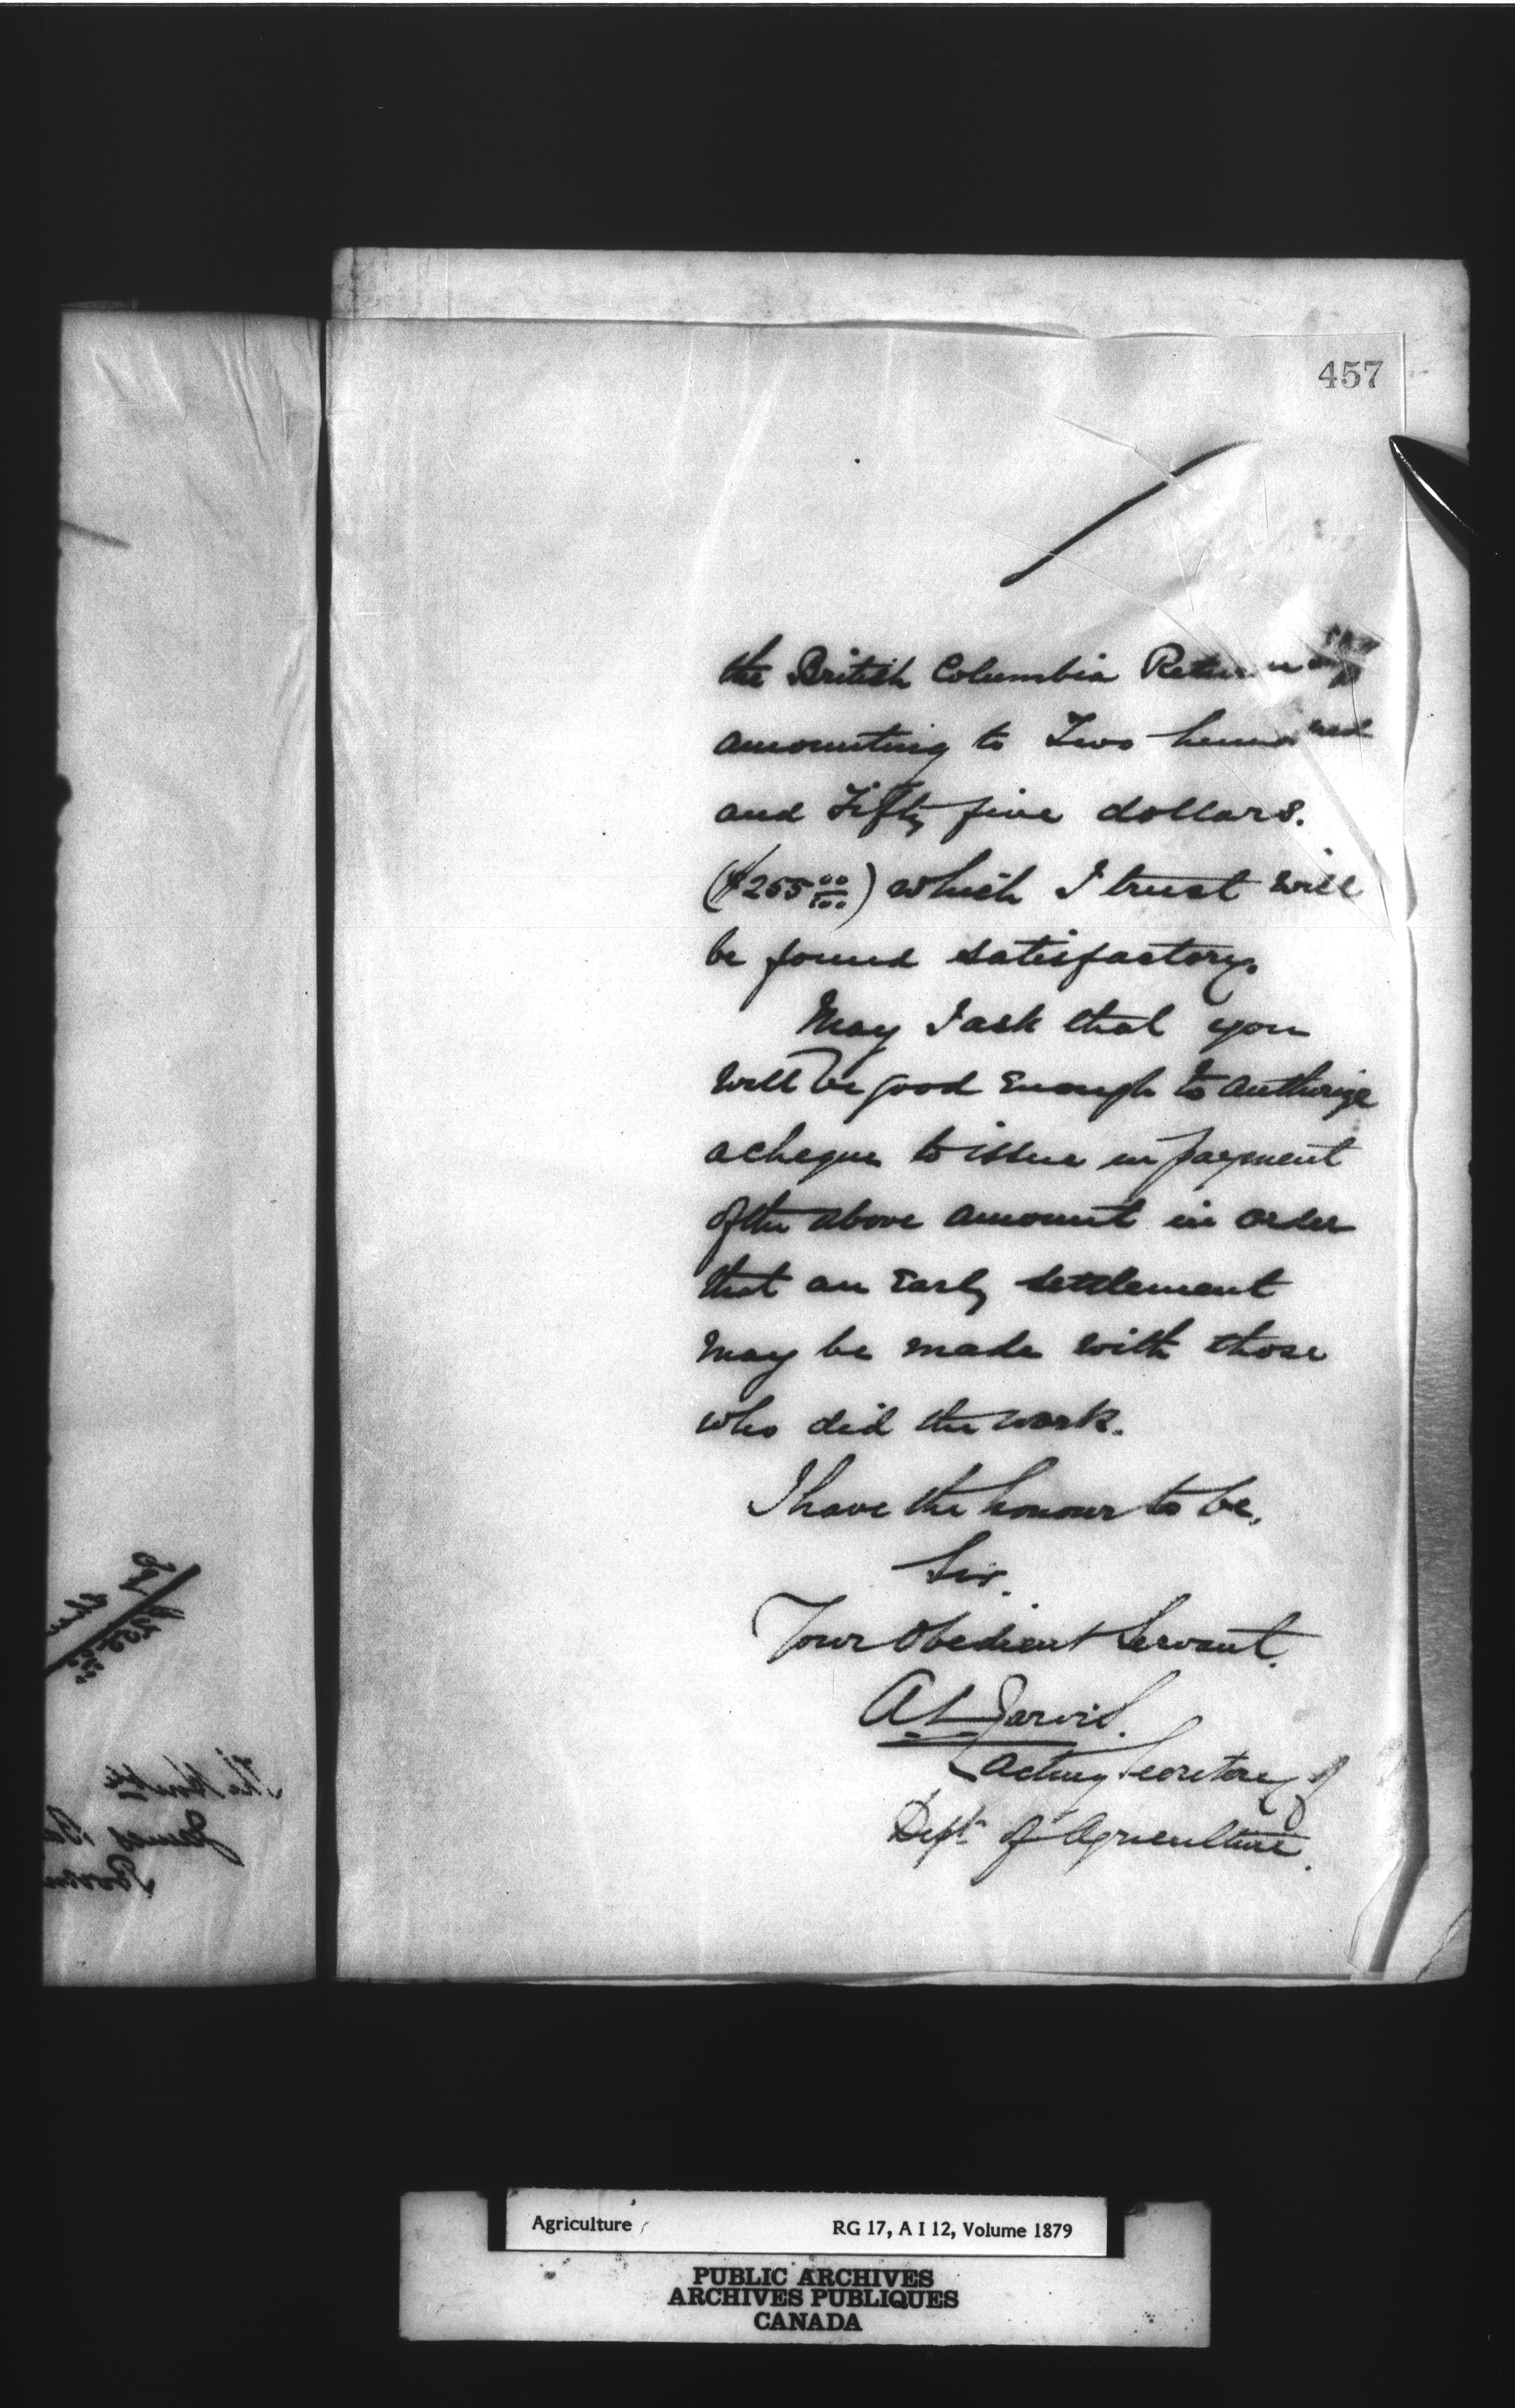 457
the British Columbia Return
amounting to Two hundred
and Fifty five dollars.
($255 00/100) which I trust will
be found satisfactory.
May I ask that you
will be good enough to authorize
a cheque to issue in payment
of the above amount in order
that an early settlement
may be made with those
who did the work.
I have the honour to be,
Sir.
Your Obedient Servant.
A L Jarvis.
Acting Secretary of
Dept of Agriculture.
Agriculture RG 17, A I 12, Volume 1879
PUBLIC ARCHIVES
ARCHIVES PUBLIQUES
CANADA